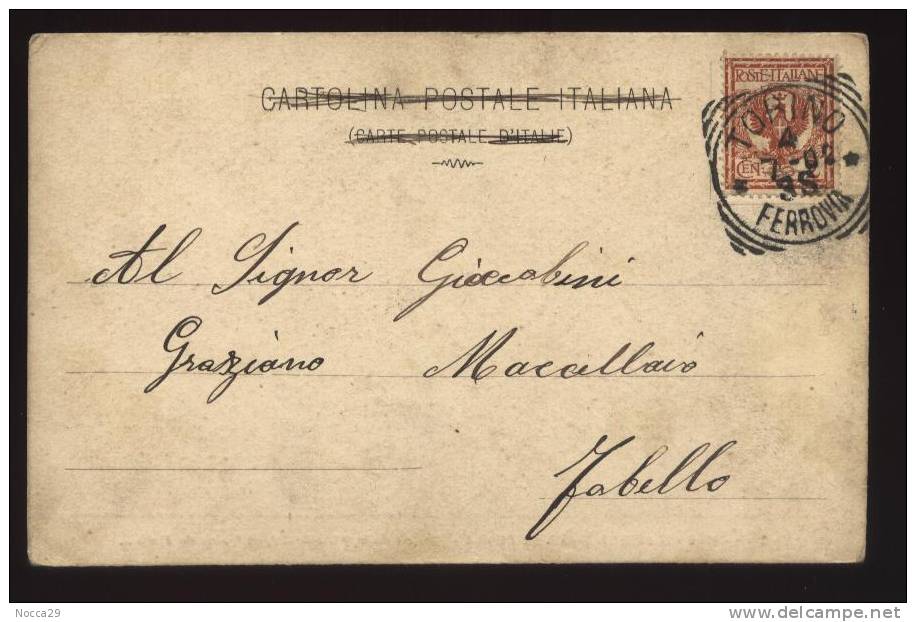 CARTOLINA POSTALE ITALIANA
(CARTE POSTALE D'ITALIE)
POSTE·ITALIANE
CEN
TORINO
4
7-02
3S
FERROVIA
Al Signor Giacobini
Graziano Macellaio
Fabello
Nocca29
delcampe.net